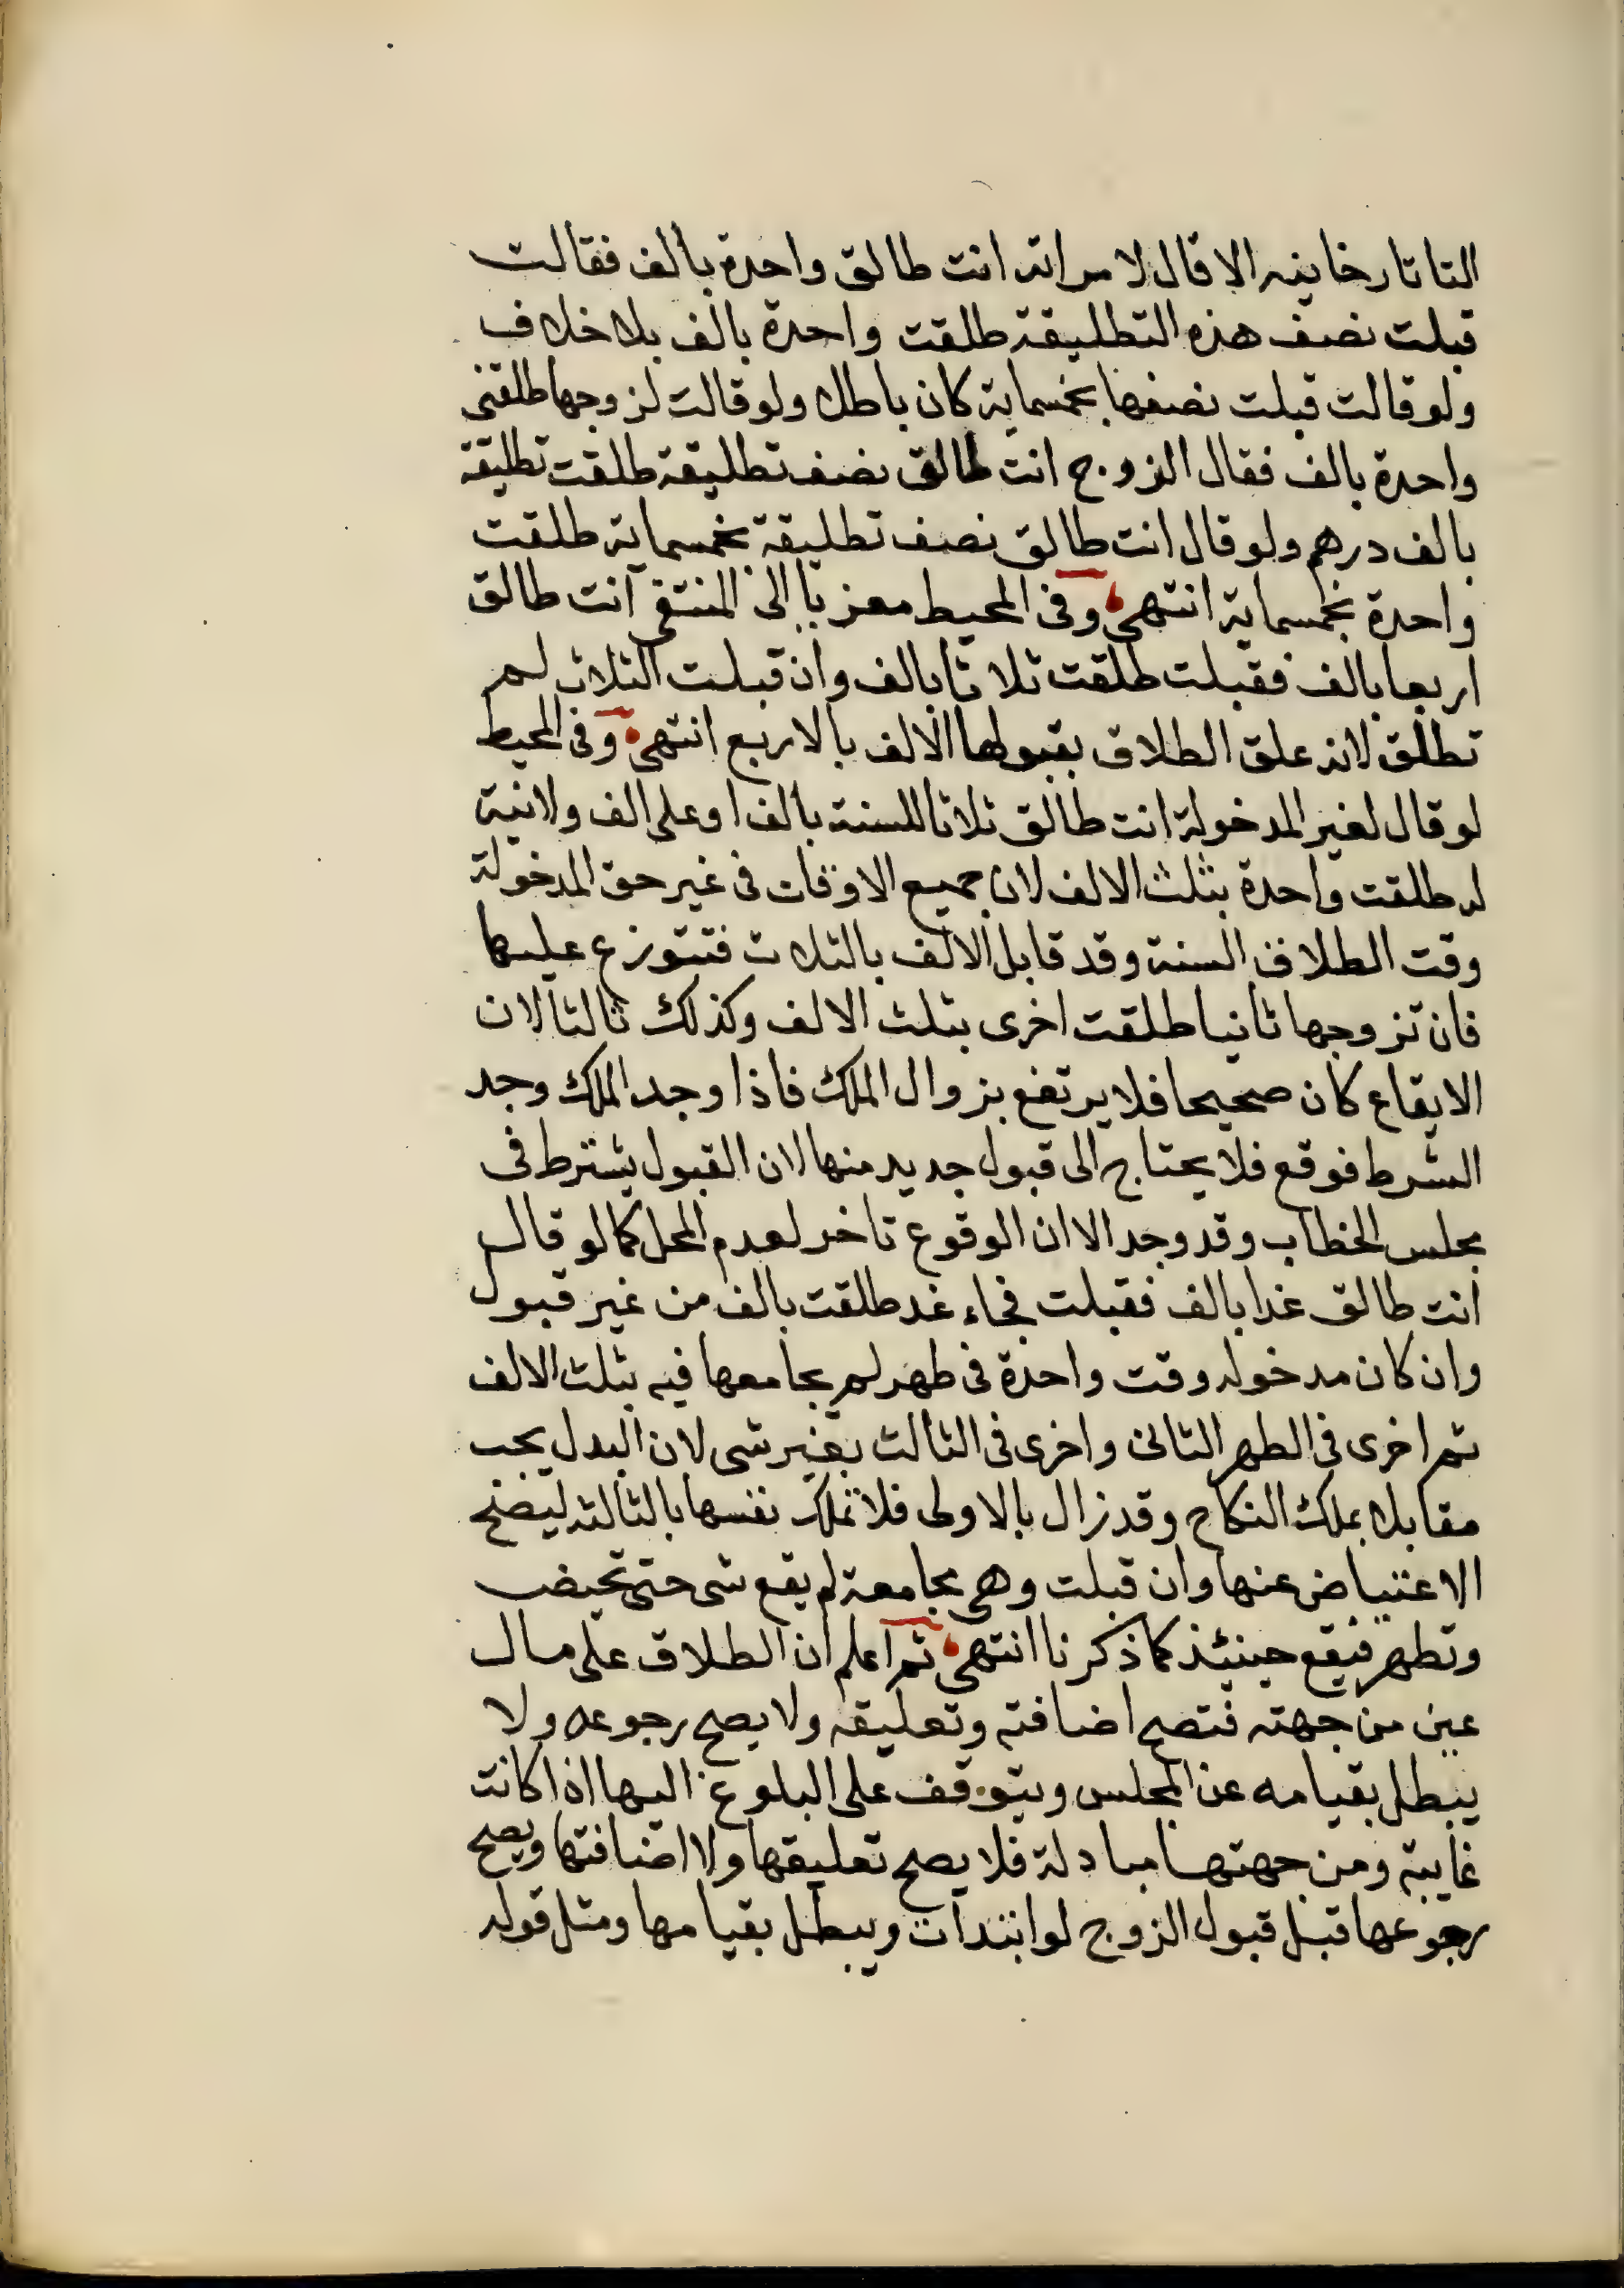 التاتارخانيه الا قال لامراته انت طالق واحدة بالف فقالت
قبلت نصف هذه التطليقة طلقت واحدة بالف بلا خلاف
ولو قالت قبلت نصفها بخمسماية كان باطلا ولو قالت لزوجها طلقنى
واحدة بالف فقال الزوج انت طالق نصف تطليقة طلقت تطليقة
بالف درهم ولو قال انت طالق نصف تطليقة بخمسماية طلقت
واحدة بخمسماية انتهى وفى المحيط معزيا الى المنتقى انت طالق
اربعا بالف فقبلت طلقت ثلاثا بالف وان قبلت الثلاث لم
تطلق لانه علق الطلاق بقبولها الالف بالاربع انتهى وفى المحيط
لو قال لغير المدخولة انت طالق ثلاثا للسنة بالف او على الف ولانية
له طلقت واحدة بثلث الالف لان جميع الاوقات فى غير حق المدخولة
وقت الطلاق السنة وقد قابل الالف بالثلاث فتتوزع عليها
فان تزوجها ثانيا طلقت اخرى بثلث الالف وكذلك ثالثا لان
الايقاع كان صحيحا فلا يرتفع بزوال الملك فاذا وجد الملك وجد
الشرط فوقع فلا يحتاج الى قبول جديد منها لان القبول يشترط فى
مجلس الخطاب وقد وجد الا ان الوقوع تاخر لعدم المحل كما لو قال
انت طالق غدا بالف فقبلت فجاء غد طلقت بالف من غير قبول
وان كان مدخوله وقت واحدة فى طهر لم يجامعها فيه بثلث الالف
ثم اخرى فى الطهر الثانى واخرى فى الثالث بغير شى لان البدل يجب
مقابلا بملك النكاح وقد زال بالاولى فلا تملك نفسها بالثالثة ليصح
الاعتياض عنها وان قبلت وهى مجامعة لم يقع شى حتى تحيض
وتطهر فيقع حينئذ كما ذكرنا انتهى ثم اعلم ان الطلاق على مال
عين من جهته فتصح اضافته وتعليقه ولا يصح رجوعه ولا
يبطل بقيامه عن المجلس ويتوقف على البلوغ اليها اذا كانت
غايبة ومن جهتها مبادلة فلا يصح تعليقها ولا اضافتها ويصح
رجوعها قبل قبول الزوج لو ابتدات ويبطل بقيامها ومثل قوله